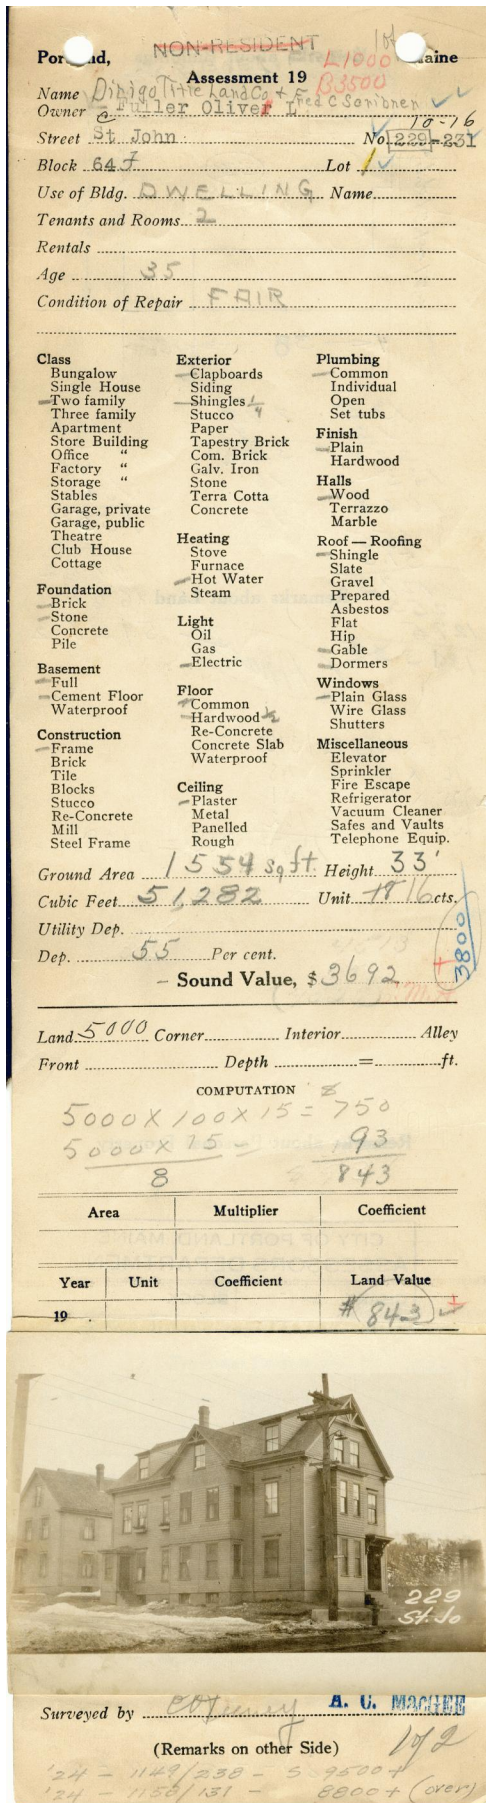 1 of
NON-RESIDENT
Portland, Maine
L1000
Assessment 19
B3500
Name Dirigo Title Land Co + F
Owner Fuller Oliver L Fred C Scribner
10-16
Street St John No. 229-231
Block 64 F Lot 1
Use of Bldg. DWELLING Name
Tenants and Rooms 2
Rentals
Age 35
Condition of Repair FAIR
Class
Bungalow
Single House
Two family
Three family
Apartment
Store Building
Office "
Factory "
Storage "
Stables
Garage, private
Garage, public
Theatre
Club House
Cottage
Foundation
Brick
Stone
Concrete
Pile
Basement
Full
Cement Floor
Waterproof
Construction
Frame
Brick
Tile
Blocks
Stucco
Re-Concrete
Mill
Steel Frame
Exterior
Clapboards
Siding
Shingles 1/4
Stucco
Paper
Tapestry Brick
Com. Brick
Galv. Iron
Stone
Terra Cotta
Concrete
Heating
Stove
Furnace
Hot Water
Steam
Light
Oil
Gas
Electric
Floor
Common
Hardwood 1/2
Re-Concrete
Concrete Slab
Waterproof
Ceiling
Plaster
Metal
Panelled
Rough
Plumbing
Common
Individual
Open
Set tubs
Finish
Plain
Hardwood
Halls
Wood
Terrazzo
Marble
Roof — Roofing
Shingle
Slate
Gravel
Prepared
Asbestos
Flat
Hip
Gable
Dormers
Windows
Plain Glass
Wire Glass
Shutters
Miscellaneous
Elevator
Sprinkler
Fire Escape
Refrigerator
Vacuum Cleaner
Safes and Vaults
Telephone Equip.
Ground Area 1554 sq ft. Height 33'
Cubic Feet 51,282 Unit 18 16 cts.
Utility Dep.
Dep. 55 Per cent.
3800
Sound Value, $3692
Land 5000 Corner Interior Alley
Front Depth = ft.
COMPUTATION
5000 X 100 X 15 = 750
5000 X 15 = 93
8 843
Area Multiplier Coefficient
Year Unit Coefficient Land Value
19 . # 843
229
St. Jo
Surveyed by A. C. MACGEE
(Remarks on other Side) 1 of 2
'24 - 1149/238 - S 9500+
'24 - 1150/131 - 8800+ (over)